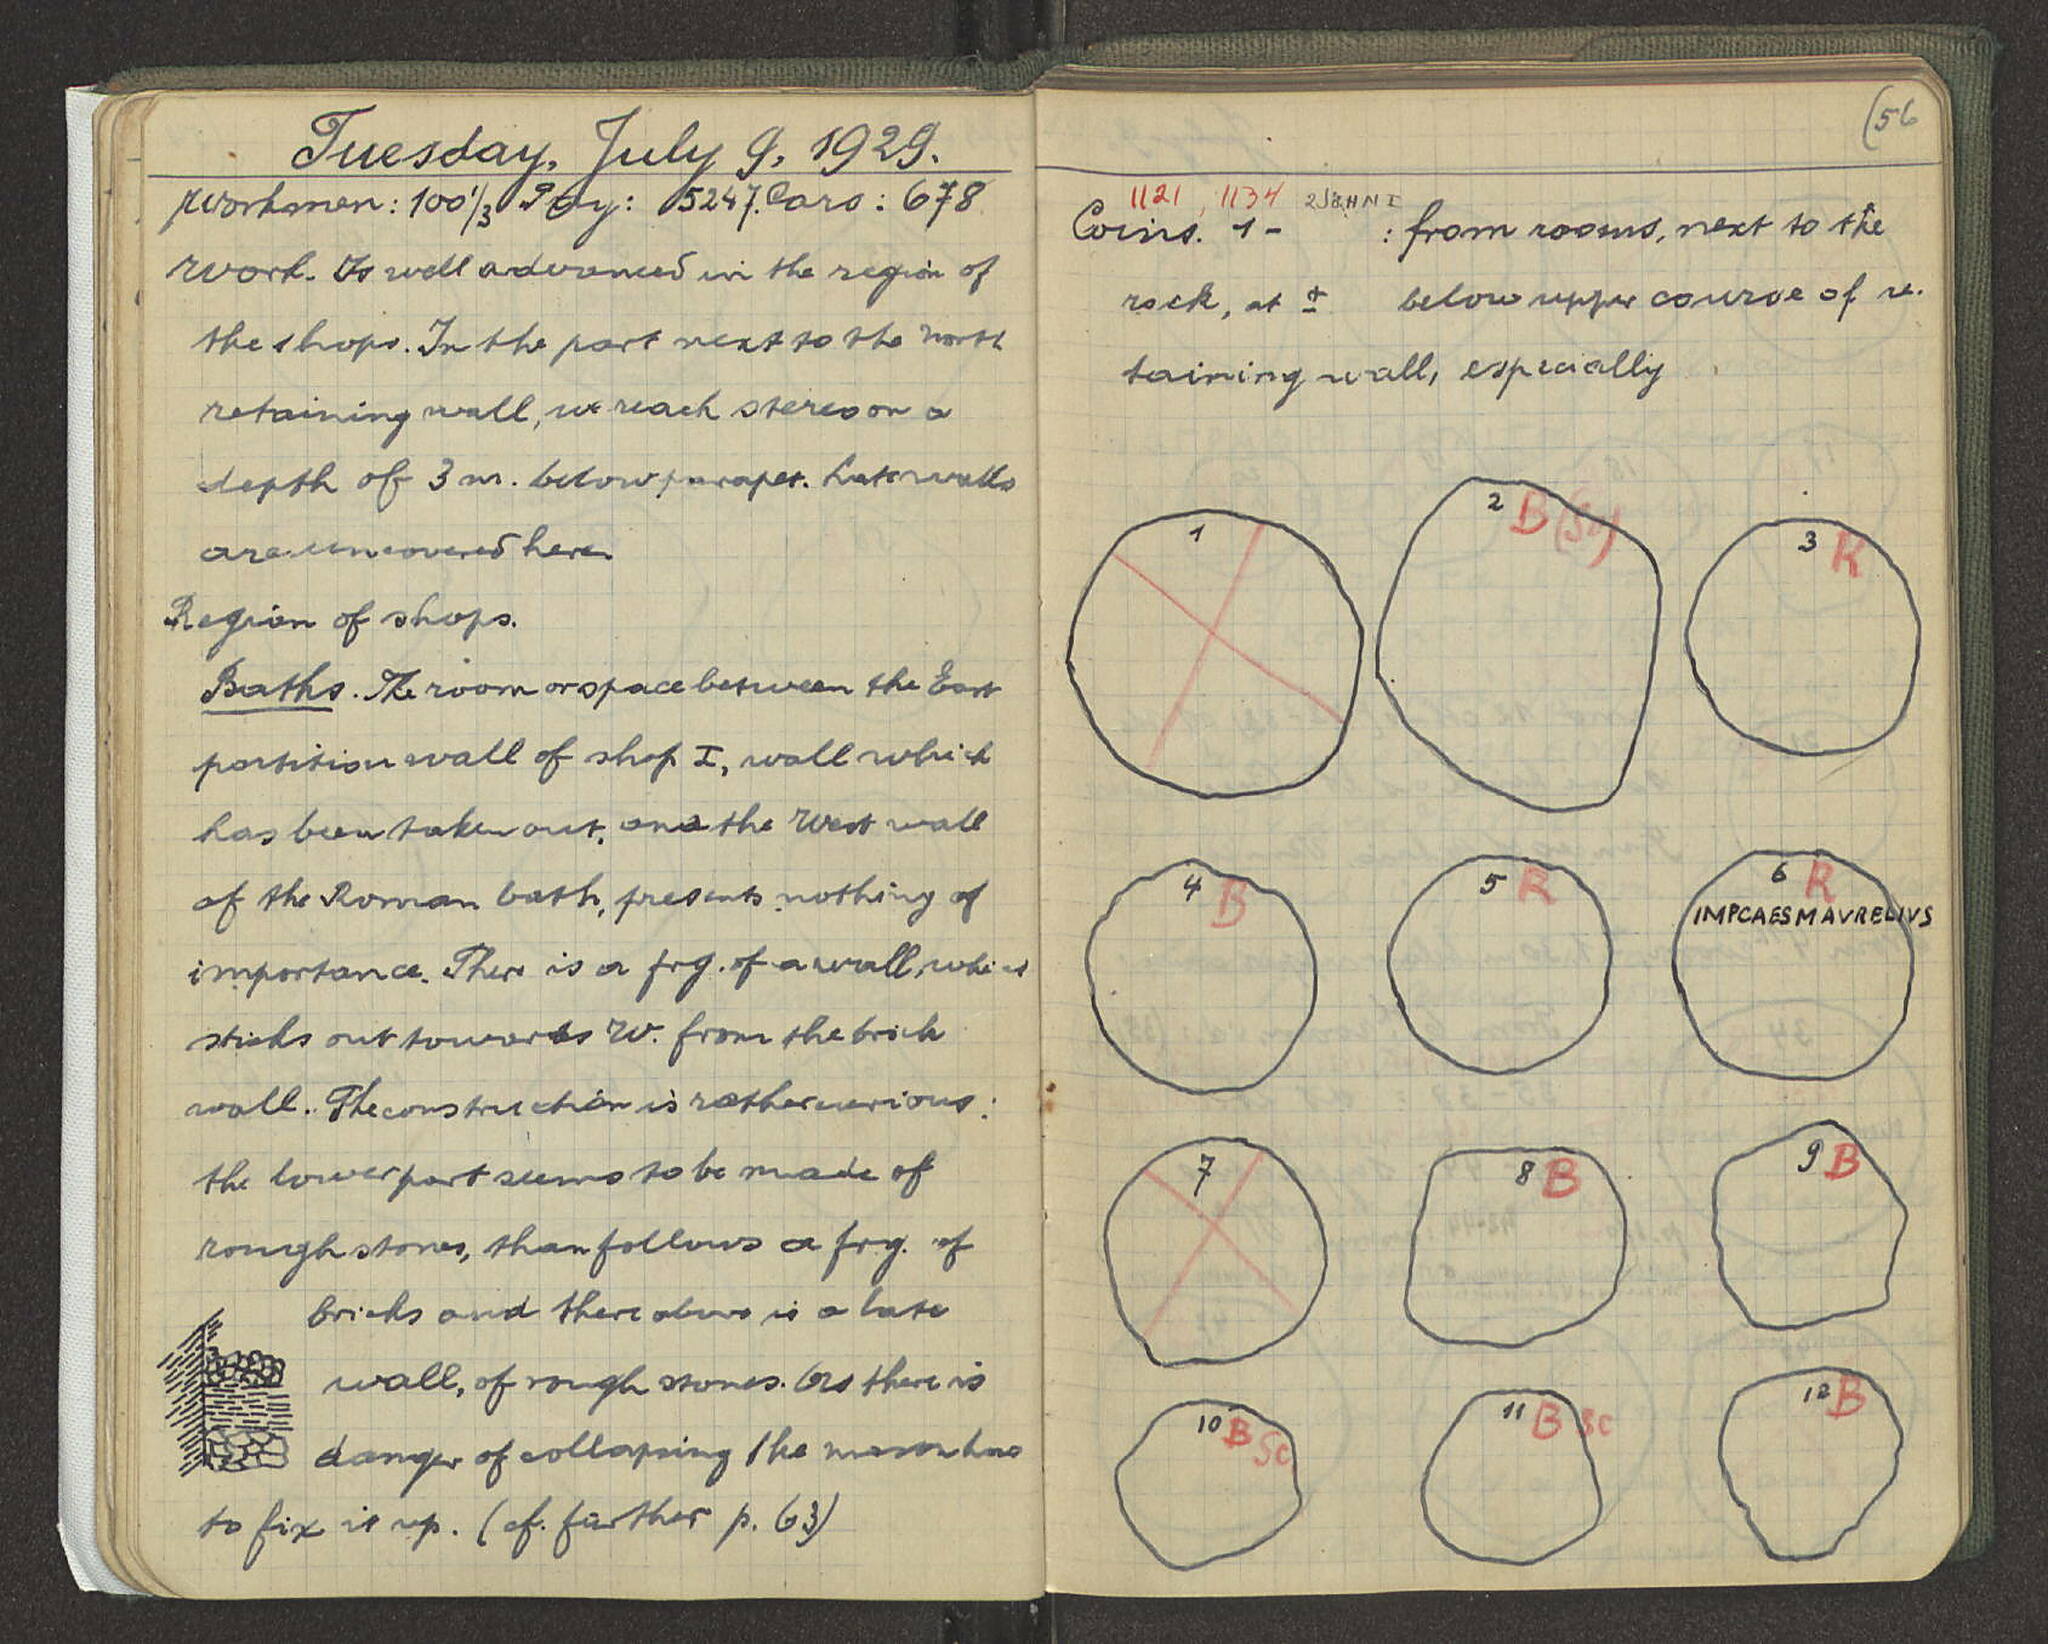 Tuesday, July 9, 1929.
Workmen: 100 1/3 Pay: 5247. Cars: 678
Work. Is well advanced in the region of
the shops. In the part next to the North
retaining wall, we reach stereo on a
depth of 3 m. below parapet. Late walls
are uncovered here.
Region of shops.
Baths. The room or space between the East
partition wall of shop I, wall which
has been taken out, and the West wall
of the Roman bath, presents nothing of
importance. There is a frg. of a wall, which
sticks out towards W. from the brick
wall. The construction is rather curious:
the lower part seems to be made of
rough stones, than follows a frg. of
bricks and there above is a late
wall, of rough stones. As there is
danger of collapsing the mason has
to fix it up. (cf. further p. 63)
(56
1121, 1134 2 JOHN I
Coins. 1- : from rooms, next to the
rock, at ± below upper course of re-
taining wall, especially
1
2 B (Sc)
3 R
4 B
5 R
6 R
IMPCAESMAVRELIVS
7
8 B
9 B
10 B Sc
11 B Sc
12 B